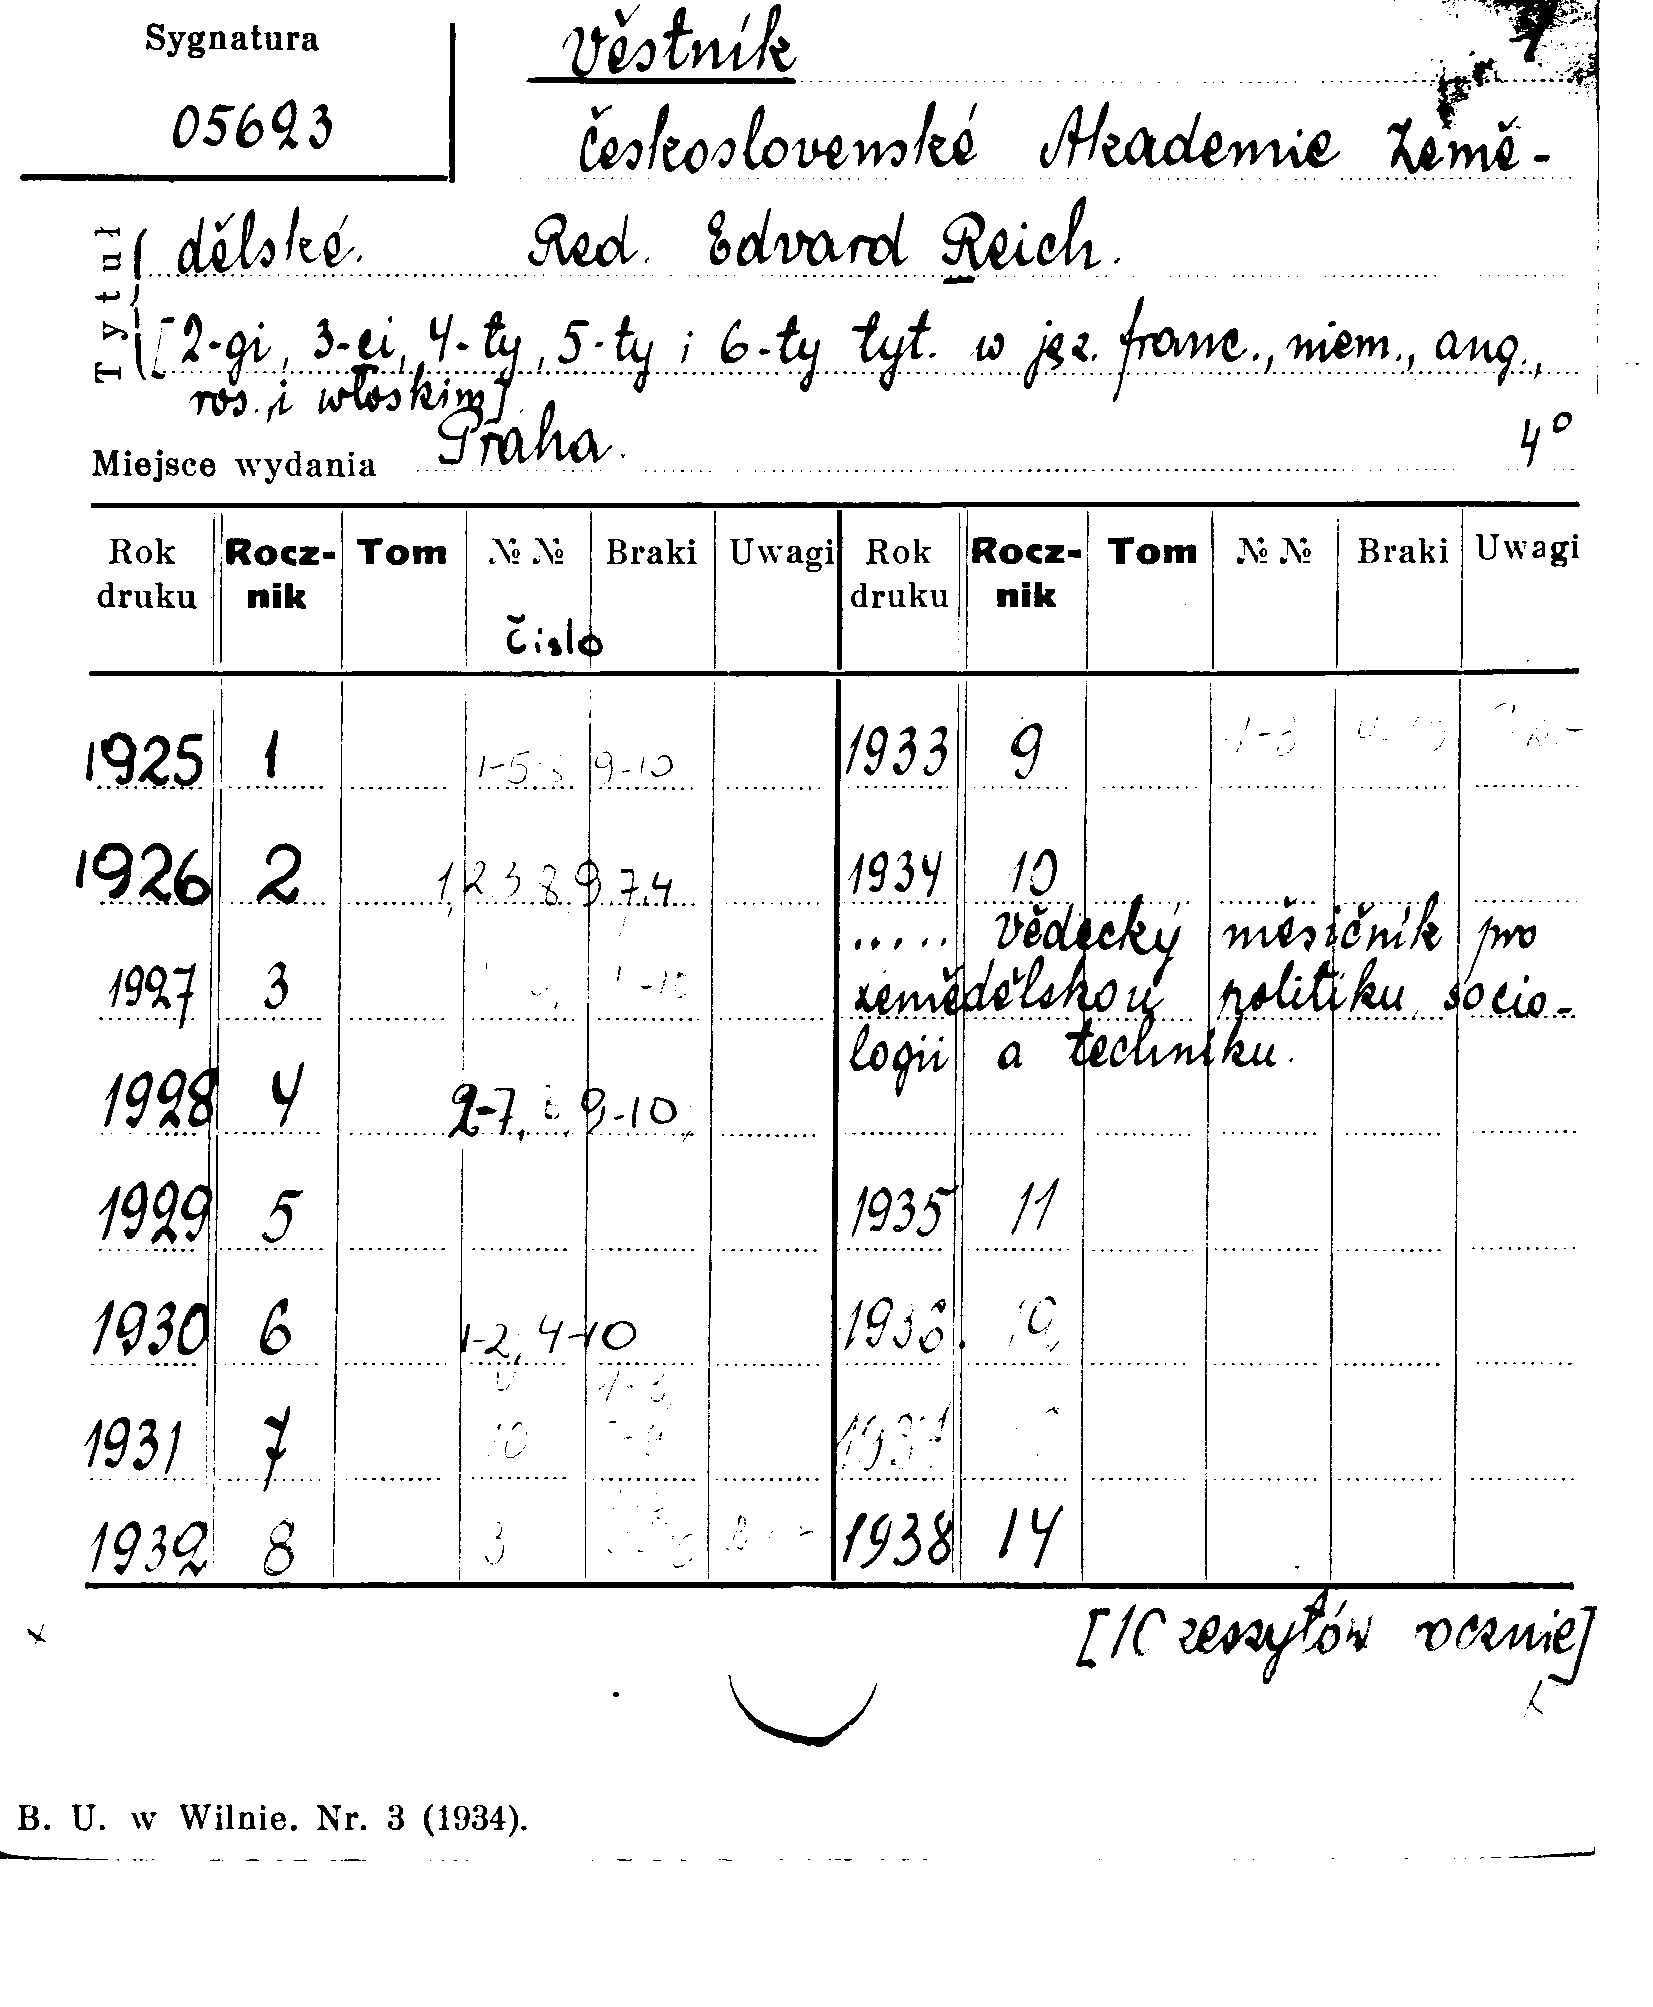 Sygnatura
05623
Věstník
Československé Akademie Země-
dělské. Red. Edvard Reich.
Tytuł
[2-gi, 3-ci, 4-ty, 5-ty i 6-ty tyt. w jęz. franc., niem., ang.,
ros. i włoskim]
Miejsce wydania Praha. 4°
Rok druku Rocz-nik Tom № № Braki Uwagi Rok druku Rocz-nik Tom № № Braki Uwagi
číslo
1925 1 1-5 9-10 1933 9 1-3
1926 2 1,2 3 8 9 7,4 1934 10
..... vědecký měsičník pro
1927 3 zemědělskou politiku socio-
logii a techniku.
1928 4 2-7, 9-10
1929 5 1935 11
1930 6 1-2, 4-10 1936
1931 7 10 1937
1932 8 3 1938 14
[10 zeszytów rocznie]
B. U. w Wilnie. Nr. 3 (1934).